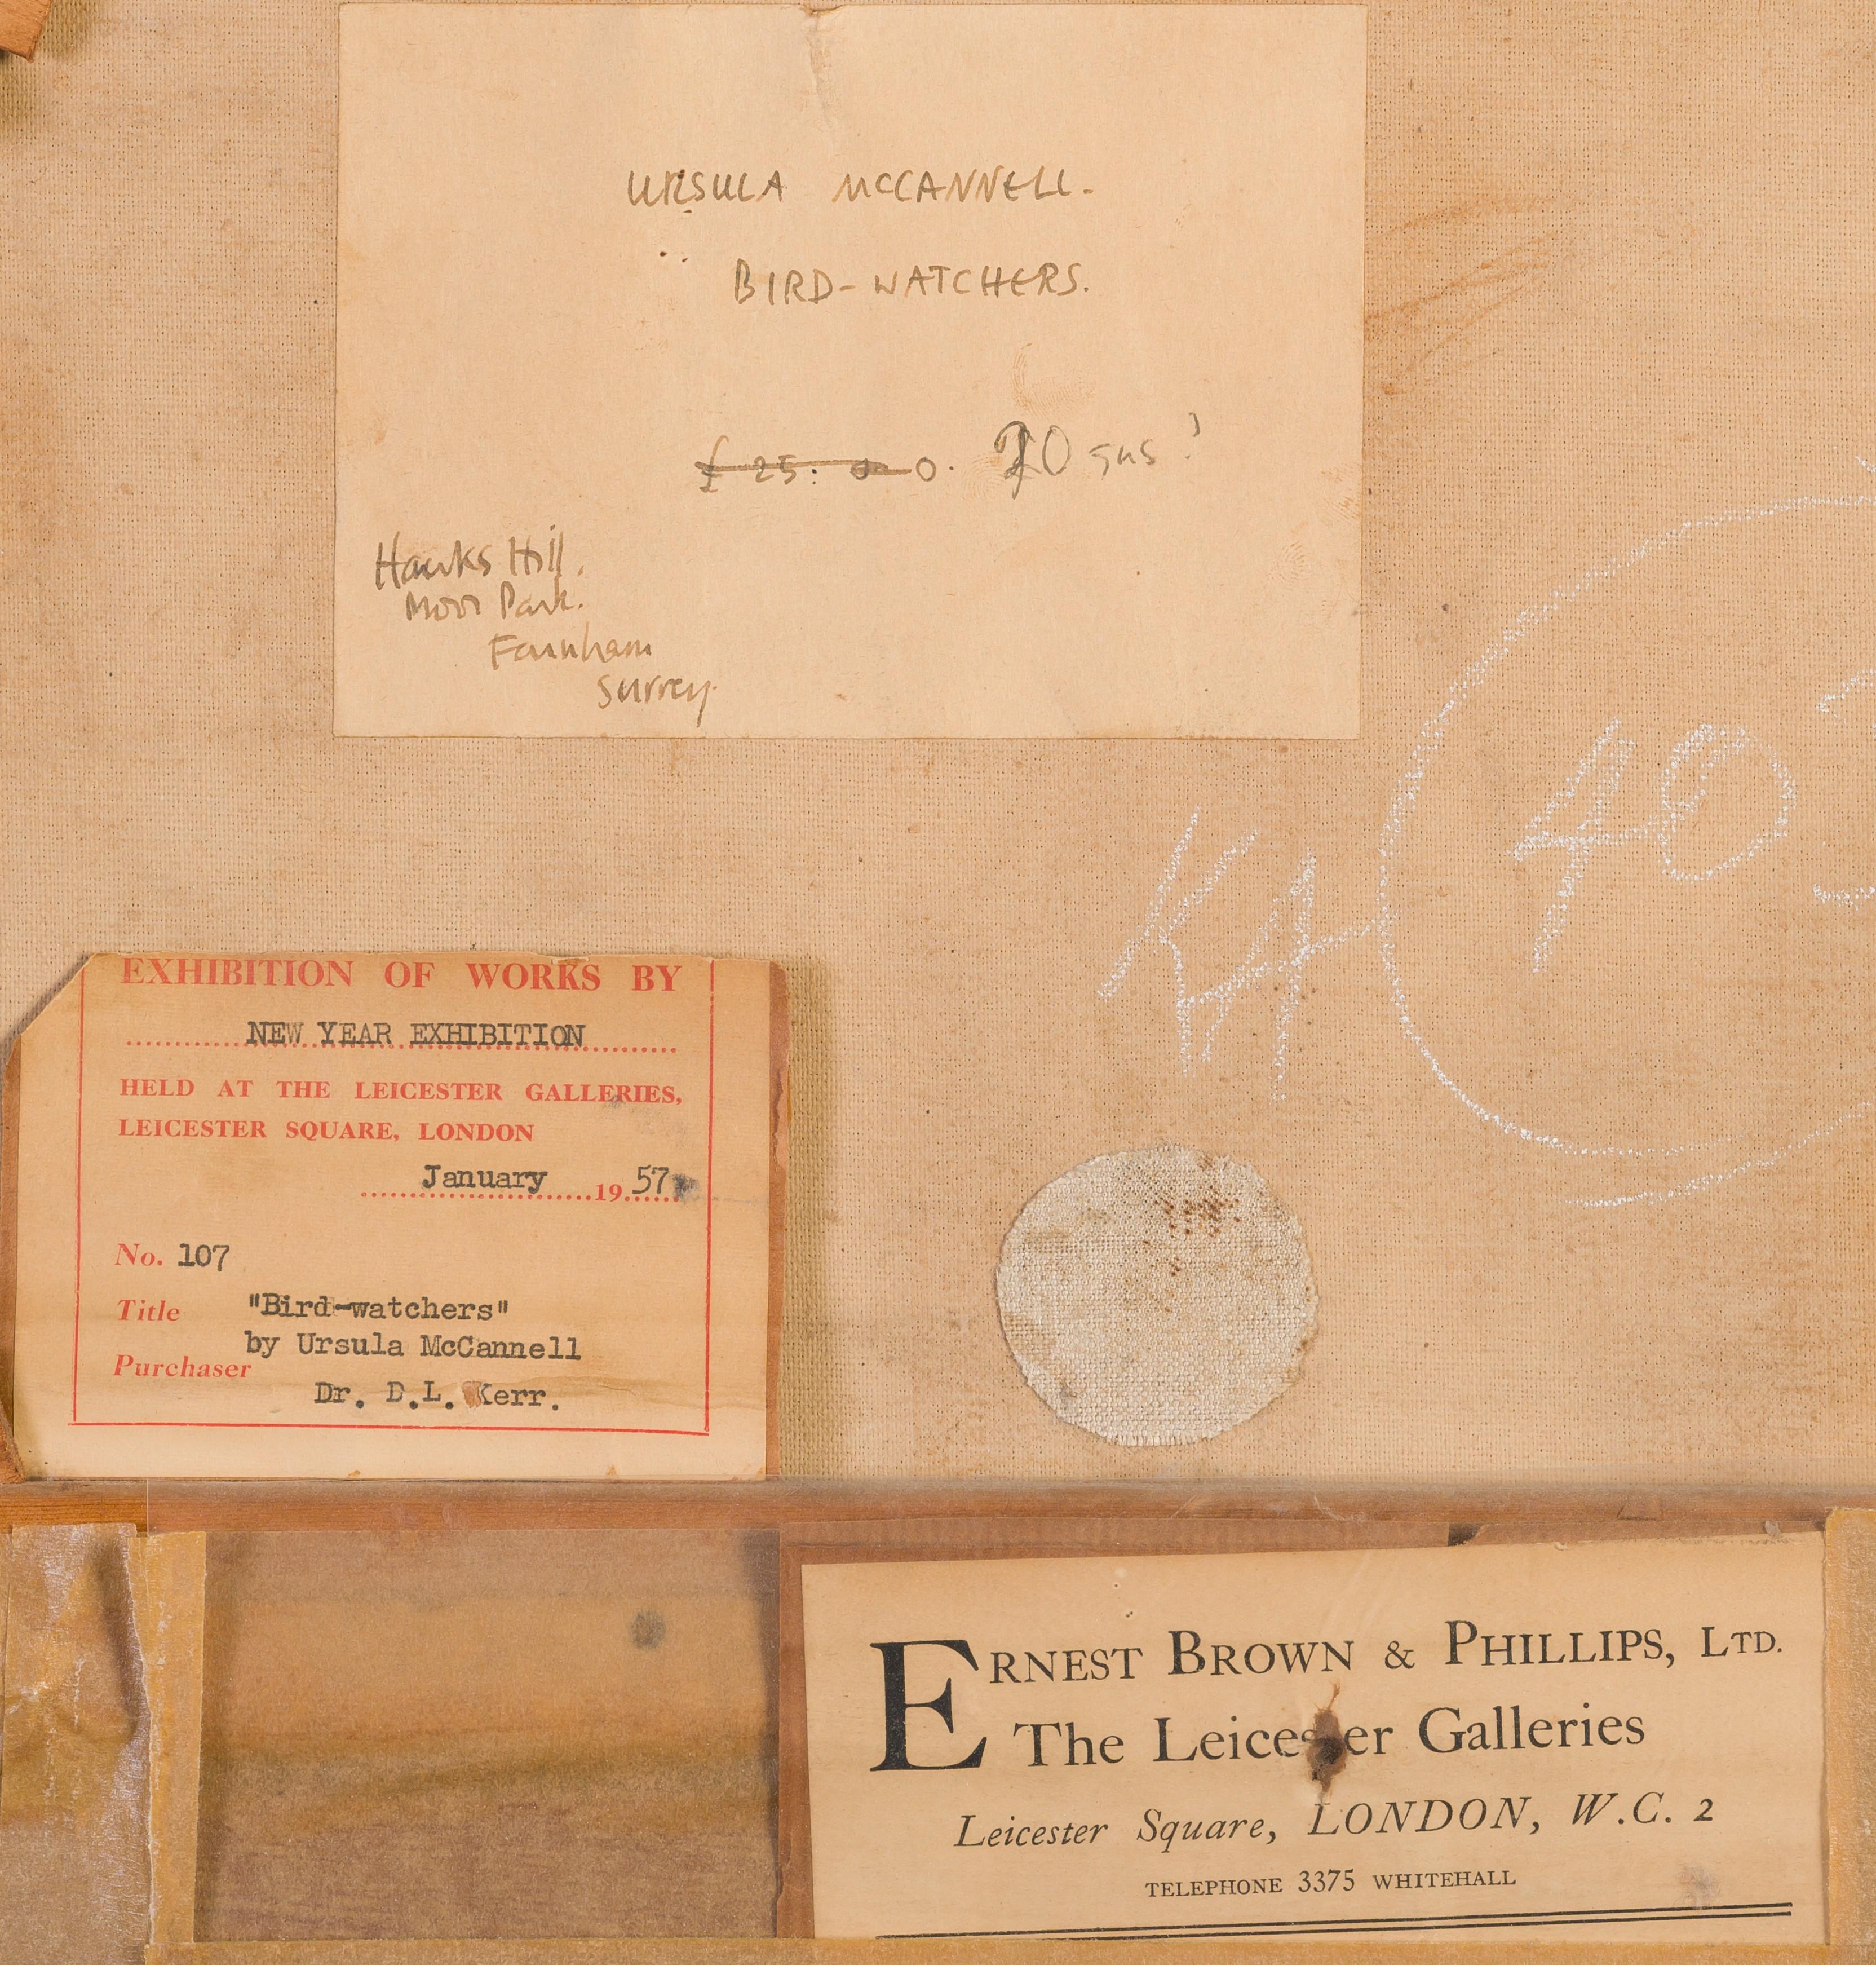 URSULA MCCANNELL.
BIRD-WATCHERS.
£ 25: 0 0. 20 gns?
Hawks Hill.
Moor Park.
Farnham
Surrey.
KA 40
EXHIBITION OF WORKS BY
NEW YEAR EXHIBITION
HELD AT THE LEICESTER GALLERIES,
LEICESTER SQUARE, LONDON
January 1957
No. 107
Title "Bird-watchers"
by Ursula McCannell
Purchaser
Dr. D.L. Kerr.
ERNEST BROWN & PHILLIPS, LTD.
The Leicester Galleries
Leicester Square, LONDON, W.C. 2
TELEPHONE 3375 WHITEHALL